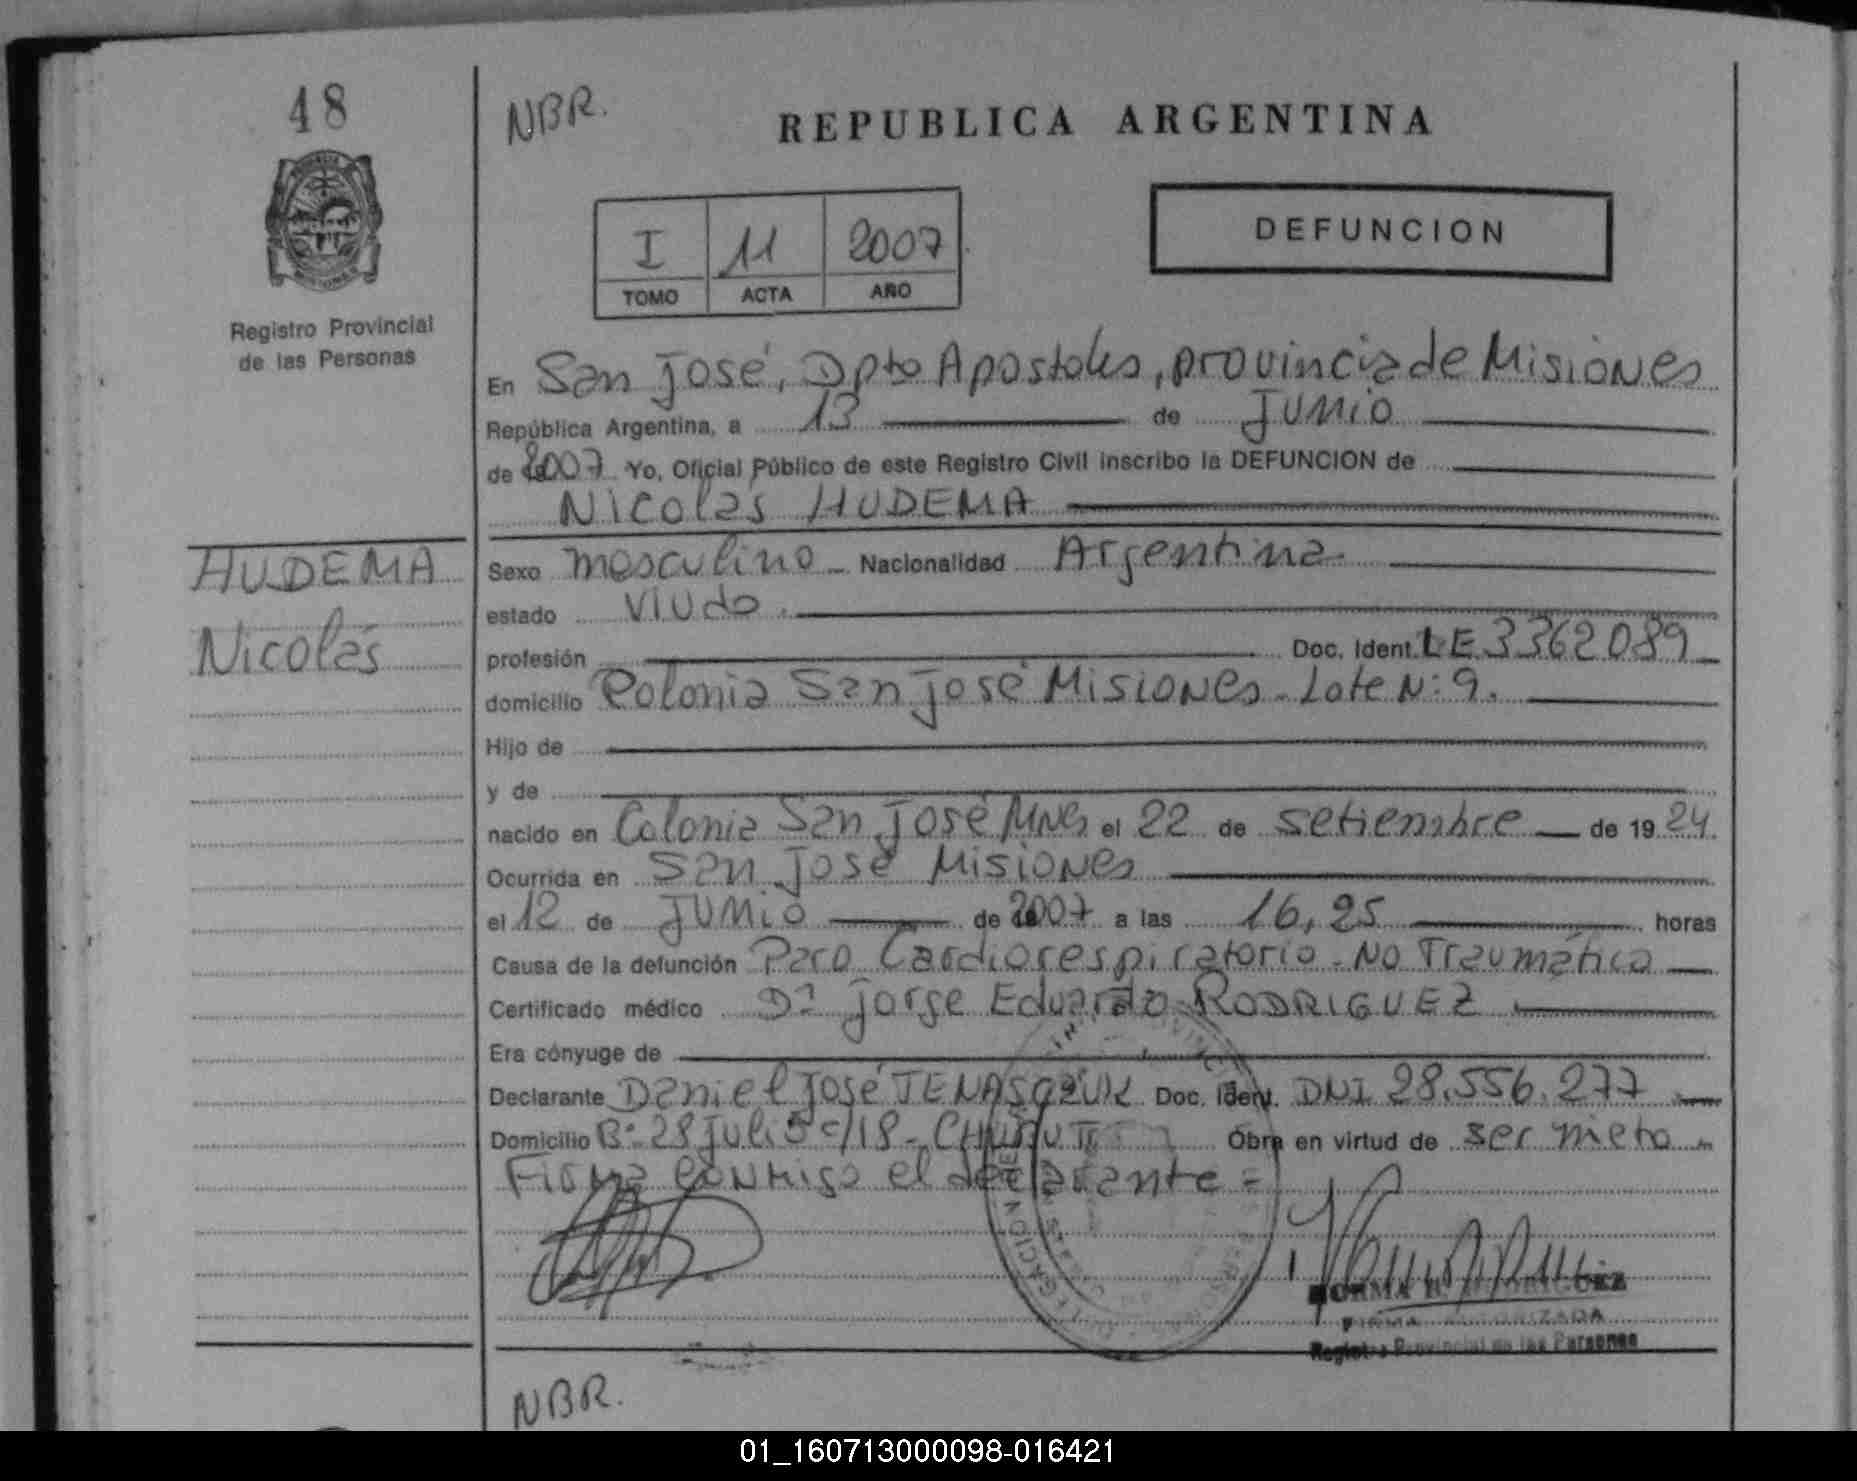 48
NBR.
REPUBLICA ARGENTINA
I 11 2007
TOMO ACTA AÑO
DEFUNCION
Registro Provincial
de las Personas
En San José, Dpto Apostoles, provincia de Misiones
República Argentina, a 13 de Junio
de 2007 Yo, Oficial Público de este Registro Civil inscribo la DEFUNCION de
Nicolas HUDEMA
HUDEMA
Nicolás
Sexo masculino Nacionalidad Argentina
estado viudo.
profesión Doc. Ident. LE 3362089
domicilio Colonia San José Misiones - Lote N: 9.
Hijo de
y de
nacido en Colonia San José Mnes el 22 de setiembre de 1924.
Ocurrida en San José Misiones
el 12 de Junio de 2007 a las 16,25 horas
Causa de la defunción Paro Cardiorespiratorio - No Traumática
Certificado médico Dr Jorge Eduardo RODRIGUEZ
Era cónyuge de
Declarante Daniel José Doc. Ident. DNI 28.556.277
Domicilio B: 28 Julio c/18 - CHUBUT Obra en virtud de ser nieto
Firma conmigo el declarante =
NORMA B. RODRIGUEZ
FIRMA AUTORIZADA
Registro Provincial de las Personas
NBR.
01_160713000098-016421